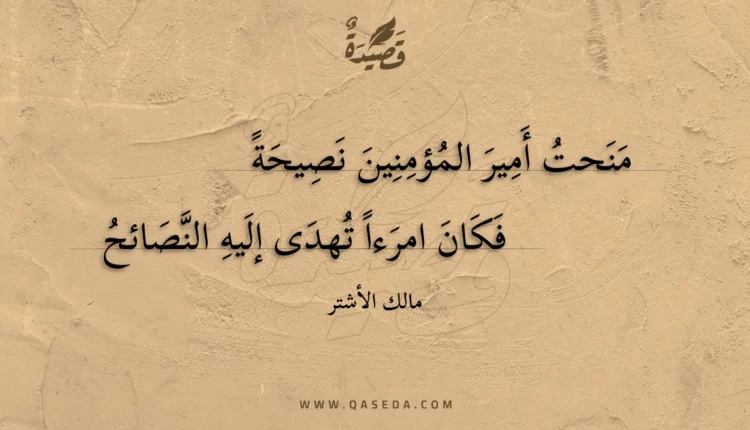 قَصِيدَةٌ
مَنَحتُ أَمِيرَ المُؤمِنِينَ نَصِيحَةً
فَكَانَ امرَءاً تُهدَى إِلَيهِ النَّصَائحُ
مالك الأشتر
WWW.QASEDA.COM